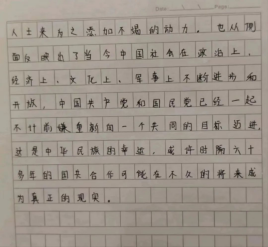 人士来为之添加不竭的动力。也从侧
面反映出了当今中国社会在政治上、
经济上、文化上、军事上不断进步和
开放。中国共产党和国民党已经一起
不计前嫌重新向一个共同的目标迈进,
这是中华民族的幸运。或许时隔六十
多年的国共合作可能在不久的将来成
为真正的现实。